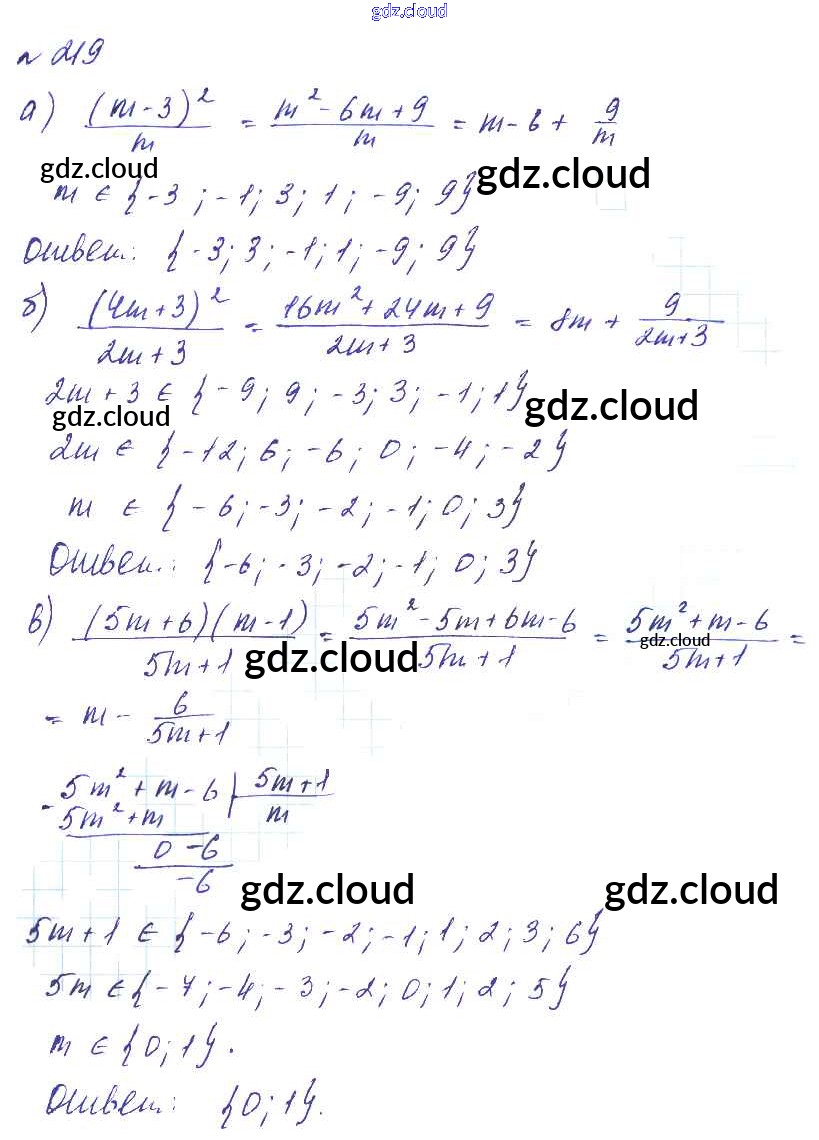 gdz.cloud
№ 219
а) (m-3)²/m = (m²-6m+9)/m = m-6+ 9/m
gdz.cloud gdz.cloud
m ∈ {-3; -1; 3; 1; -9; 9}
Ответ: {-3; 3; -1; 1; -9; 9}
б) (4m+3)²/(2m+3) = (16m²+24m+9)/(2m+3) = 8m + 9/(2m+3)
2m+3 ∈ {-9; 9; -3; 3; -1; 1}
gdz.cloud gdz.cloud
2m ∈ {-12; 6; -6; 0; -4; -2}
m ∈ {-6; -3; -2; -1; 0; 3}
Ответ: {-6; -3; -2; -1; 0; 3}
в) (5m+6)(m-1)/(5m+1) = (5m²-5m+6m-6)/(5m+1) = (5m²+m-6)/(5m+1) =
gdz.cloud gdz.cloud
= m - 6/(5m+1)
- 5m²+m-6 | 5m+1
5m²+m m
0-6
-6
gdz.cloud gdz.cloud
5m+1 ∈ {-6; -3; -2; -1; 1; 2; 3; 6}
5m ∈ {-7; -4; -3; -2; 0; 1; 2; 5}
m ∈ {0; 1}.
Ответ: {0; 1}.